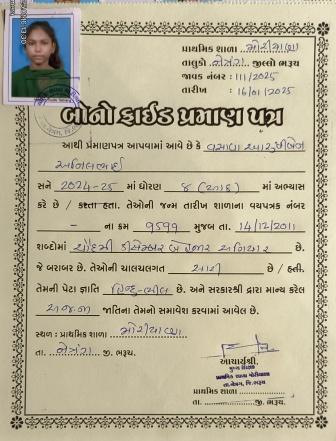 પ્રાથમિક શાળા મોરીયાણા
તાલુકો નેત્રંગ જીલ્લો ભરૂચ
જાવક નંબર : 111/2025
તારીખ : 16/01/2025
બોનો ફાઈડ પ્રમાણ પત્ર
આથી પ્રમાણપત્ર આપવામાં આવે છે કે વસાવા
અનિલભાઈ
સને 2024-25 માં ધોરણ ૮ (આઠ) માં અભ્યાસ
કરે છે / કરતા હતા. તેઓની જન્મ તારીખ શાળાના વયપત્રક નંબર
- ના ક્રમ 9599 મુજબ તા. 14/12/2011
શબ્દોમાં ચૌદમી ડીસેમ્બર બે હજાર અગિયાર છે.
જે બરાબર છે. તેઓની ચાલચલગત સારી છે / હતી.
તેમની પેટા જ્ઞાતિ હિન્દુ-ભીલ છે. અને સરકારશ્રી દ્વારા માન્ય કરેલ
અ.જ.જા જાતિના તેમનો સમાવેશ કરવામાં આવેલ છે.
સ્થળ : પ્રાથમિક શાળા મોરીયાણા
તા. નેત્રંગ જી. ભરૂચ.
આચાર્યશ્રી,
મુખ્ય શિક્ષક
પ્રાથમિક શાળા મોરીયાણા
તા.નેત્રંગ, જિ.ભરૂચ
પ્રાથમિક શાળા
તા. જી. ભરૂચ.